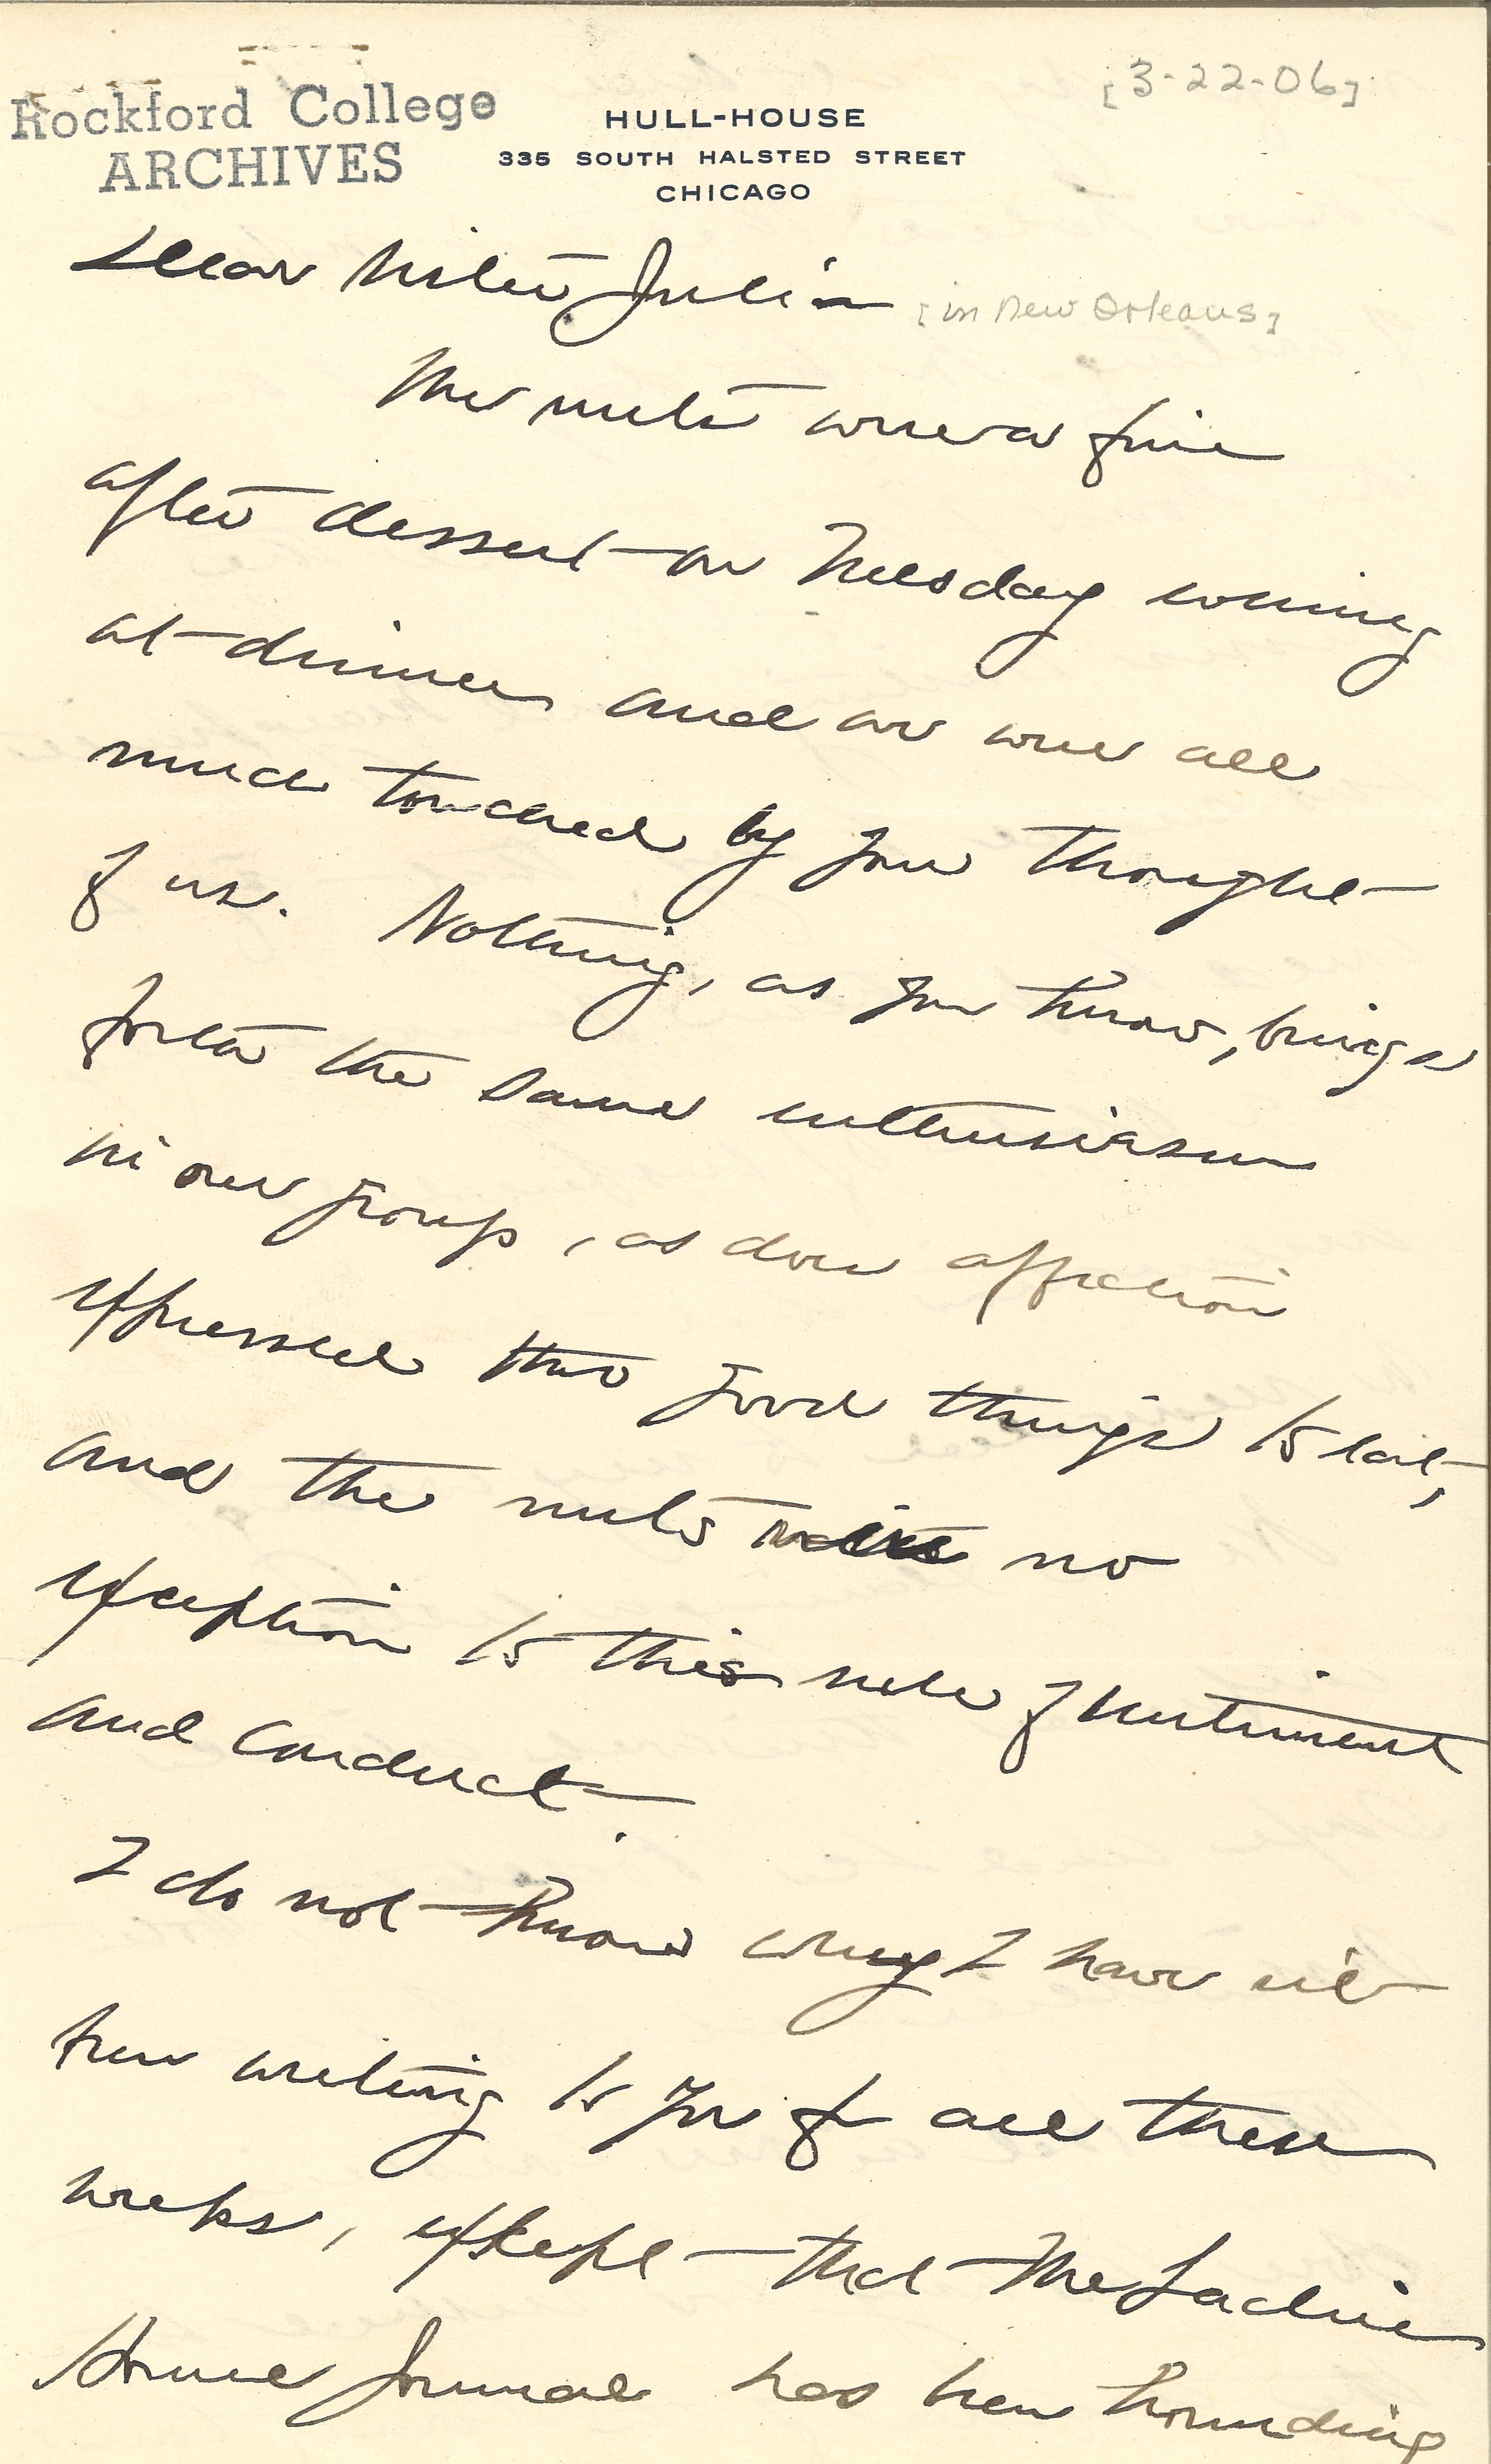 Rockford College
ARCHIVES
[3-22-06]
HULL-HOUSE
335 SOUTH HALSTED STREET
CHICAGO
Dear Sister Julia [in New Orleans]
The nuts were a fine
after dessert on Tuesday evening
at dinner and we were all
much touched by your thought
of us. Nothing, as you know, brings
forth the same enthusiasm
in our group, as does affection
expressed thro good things to eat,
and the nuts were no
exception to this rule of sentiment
and conduct.
I do not know why I have not
been writing to you for all these
weeks, except that The Ladies
Home Journal has been hounding